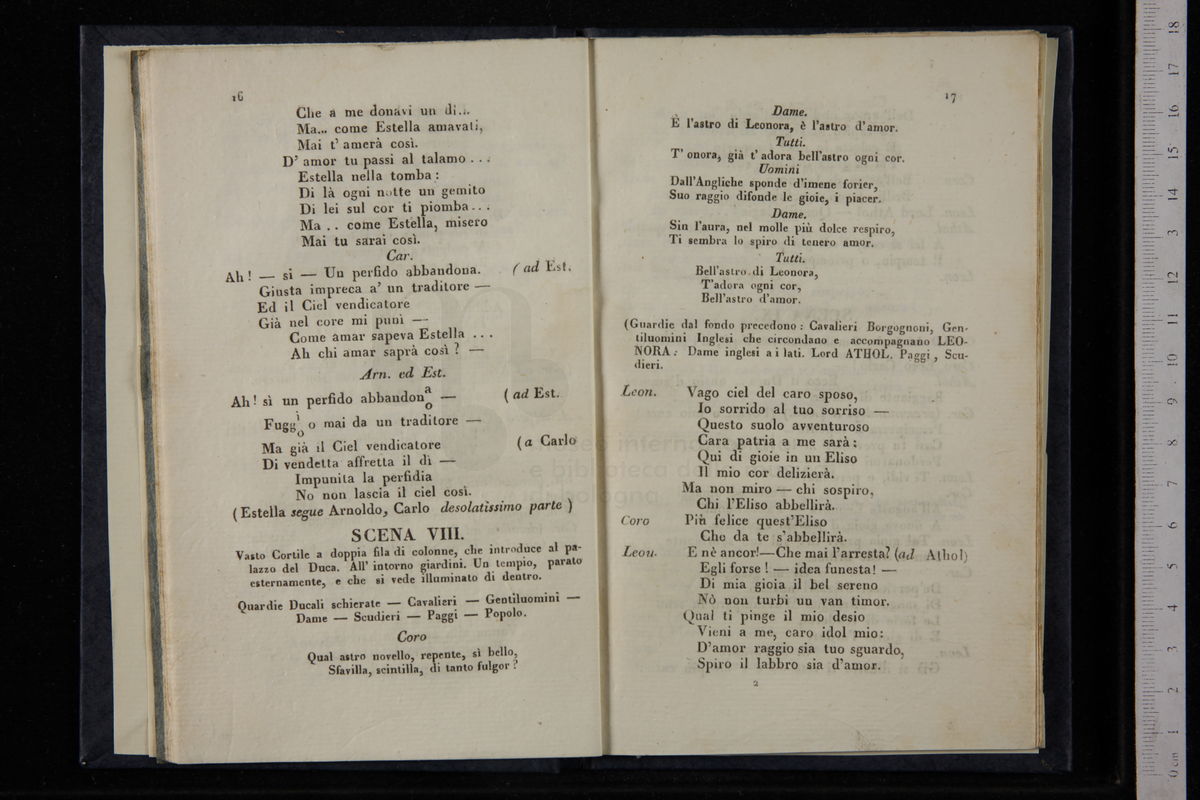 16
Che a me donavi un di...
Ma... come Estella amavati,
Mai t' amerà così.
D' amor tu passi al talamo . . .
Estella nella tomba :
Di là ogni notte un gemito
Di lei sul cor ti piomba . . .
Ma . . come Estella, misero
Mai tu sarai così.
Car.
Ah ! — si — Un perfido abbandona. ( ad Est.
Giusta impreca a' un traditore —
Ed il Ciel vendicatore
Già nel core mi punì —
Come amar sapeva Estella . . .
Ah chi amar saprà così ? —
Arn. ed Est.
Ah ! sì un perfido abbandon a o — ( ad Est.
Fugg i o o mai da un traditore —
Ma già il Ciel vendicatore ( a Carlo
Di vendetta affretta il dì —
Impunita la perfidia
No non lascia il ciel così.
( Estella segue Arnoldo, Carlo desolatissimo parte )
SCENA VIII.
Vasto Cortile a doppia fila di colonne, che introduce al pa-
lazzo del Duca. All' intorno giardini. Un tempio, parato
esternamente, e che si vede illuminato di dentro.
Quardie Ducali schierate — Cavalieri — Gentiluomini —
Dame — Scudieri — Paggi — Popolo.
Coro
Qual astro novello, repente, sì bello,
Sfavilla, scintilla, di tanto fulgor ?
17
Dame.
È l'astro di Leonora, è l'astro d'amor.
Tutti.
T' onora, già t' adora bell'astro ogni cor.
Uomini
Dall'Angliche sponde d'imene forier,
Suo raggio difonde le gioie, i piacer.
Dame.
Sin l'aura, nel molle più dolce respiro,
Ti sembra lo spiro di tenero amor.
Tutti.
Bell'astro di Leonora,
T'adora ogni cor,
Bell'astro d'amor.
(Guardie dal fondo precedono : Cavalieri Borgognoni, Gen-
tiluomini Inglesi che circondano e accompagnano LEO-
NORA : Dame inglesi a i lati. Lord ATHOL. Paggi , Scu-
dieri.
Leon. Vago ciel del caro sposo,
Io sorrido al tuo sorriso —
Questo suolo avventuroso
Cara patria a me sarà :
Qui di gioie in un Eliso
Il mio cor delizierà.
Ma non miro — chi sospiro,
Chi l'Eliso abbellirà.
Coro Più felice quest'Eliso
Che da te s'abbellirà.
Leon. E nè ancor!—Che mai l'arresta? (ad Athol)
Egli forse ! — idea funesta! —
Di mia gioia il bel sereno
Nò non turbi un van timor.
Qual ti pinge il mio desio
Vieni a me, caro idol mio:
D'amor raggio sia tuo sguardo,
Spiro il labbro sia d'amor.
2
0 cm 1 2 3 4 5 6 7 8 9 10 11 12 13 14 15 16 17 18